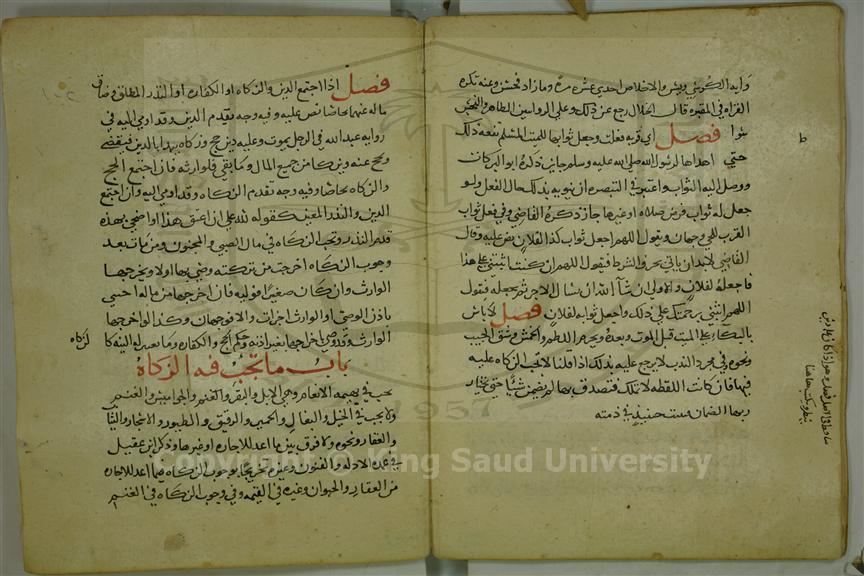 وآية الكرسي ويس والاخلاص احدى عشرة مرة وما زاد فحسن وعنه تكره
القراءة في المقبرة قال الخلال رجع عن ذلك وعلى الروايتين الطاهر والنجس
سوا فصل اي قربه فعلت وجعل ثوابها للميت المسلم نفعه ذلك
حتى اهداها لرسول الله صلى الله عليه وسلم جاز ذكره ابو البركات
ووصل اليه الثواب واعتبر في التبصره ان ينويه بذلك حال الفعل ولو
جعل له ثواب فرض صلاه او غيرها جاز ذكره القاضي وفي نقل ثواب
القرب للحي وجهان ويقول اللهم اجعل ثواب كذا لفلان نص عليه وقال
القاضي لابد ان ياتي بحرف الشرط فيقول اللهم ان كنت اثبتني على هذا
فاجعله لفلان والاولى ان شا الله ان يسال الاجر ثم يجعله فيقول
اللهم اثبني برحمتك على ذلك واجعل ثوابه لفلان فصل لا باس
بالبكا على الميت قبل الموت وبعده ويحرم اللطم والخمش وشق الجيب
ونحوه
اذا قلنا لا تجب الزكاه عليه
فيها فان كانت اللقطه لا تملك فتصدق بها لم يضمن شيا حتى يختار
ربها الضمان فيثبت حينئذ في ذمته
فصل اذا اجتمع الدين والزكاه او الكفاره او النذر المطلق وضاق
ماله عنهما تحاصا نص عليه وفيه وجه تقدم الدين وقد اومى اليه في
روايه عبد الله في الرجل يموت وعليه دين حج وزكاه يبدا بالدين فيقضي
ويحج عنه ويزكا من جميع المال وما بقي فلوارثه فان اجتمع الحج
والزكاه تحاصا وفيه وجه تقدم الزكاه وقد اومى اليه وان اجتمع
الدين والنذر المعين كقوله لله علي ان اعتق هذا او اضحي بهذه
قدم النذر وتجب الزكاه في مال الصبي والمجنون ومن مات بعد
وجوب الزكاه اخرجت من تركته وصى بها اولا ويخرجها
الوارث وان كان صغيرا فوليه فان اخرجها من ماله اجنبي
باذن الوصي او الوارث اجزات والا فوجهان وكذا لو اخرجها
الوارث
زكاه
باب ما تجب فيه الزكاه
تجب في بهيمه الانعام وهي الابل والبقر والغنم والجواميس والغنم
ولا تجب في الخيل والبغال والحمير والرقيق والطيور والاشجار والثياب
والعقار ونحوه ولا فرق بين ما اعد للاجاره او غيرها وذكر ابن عقيل
في عمد الادله والفنون وغيره تخريجا بوجوب الزكاه فيما اعد للاجاره
من العقار والحيوان وغيره في القيمه وفي وجوب الزكاه في الغنم
Copyright © King Saud University
1957